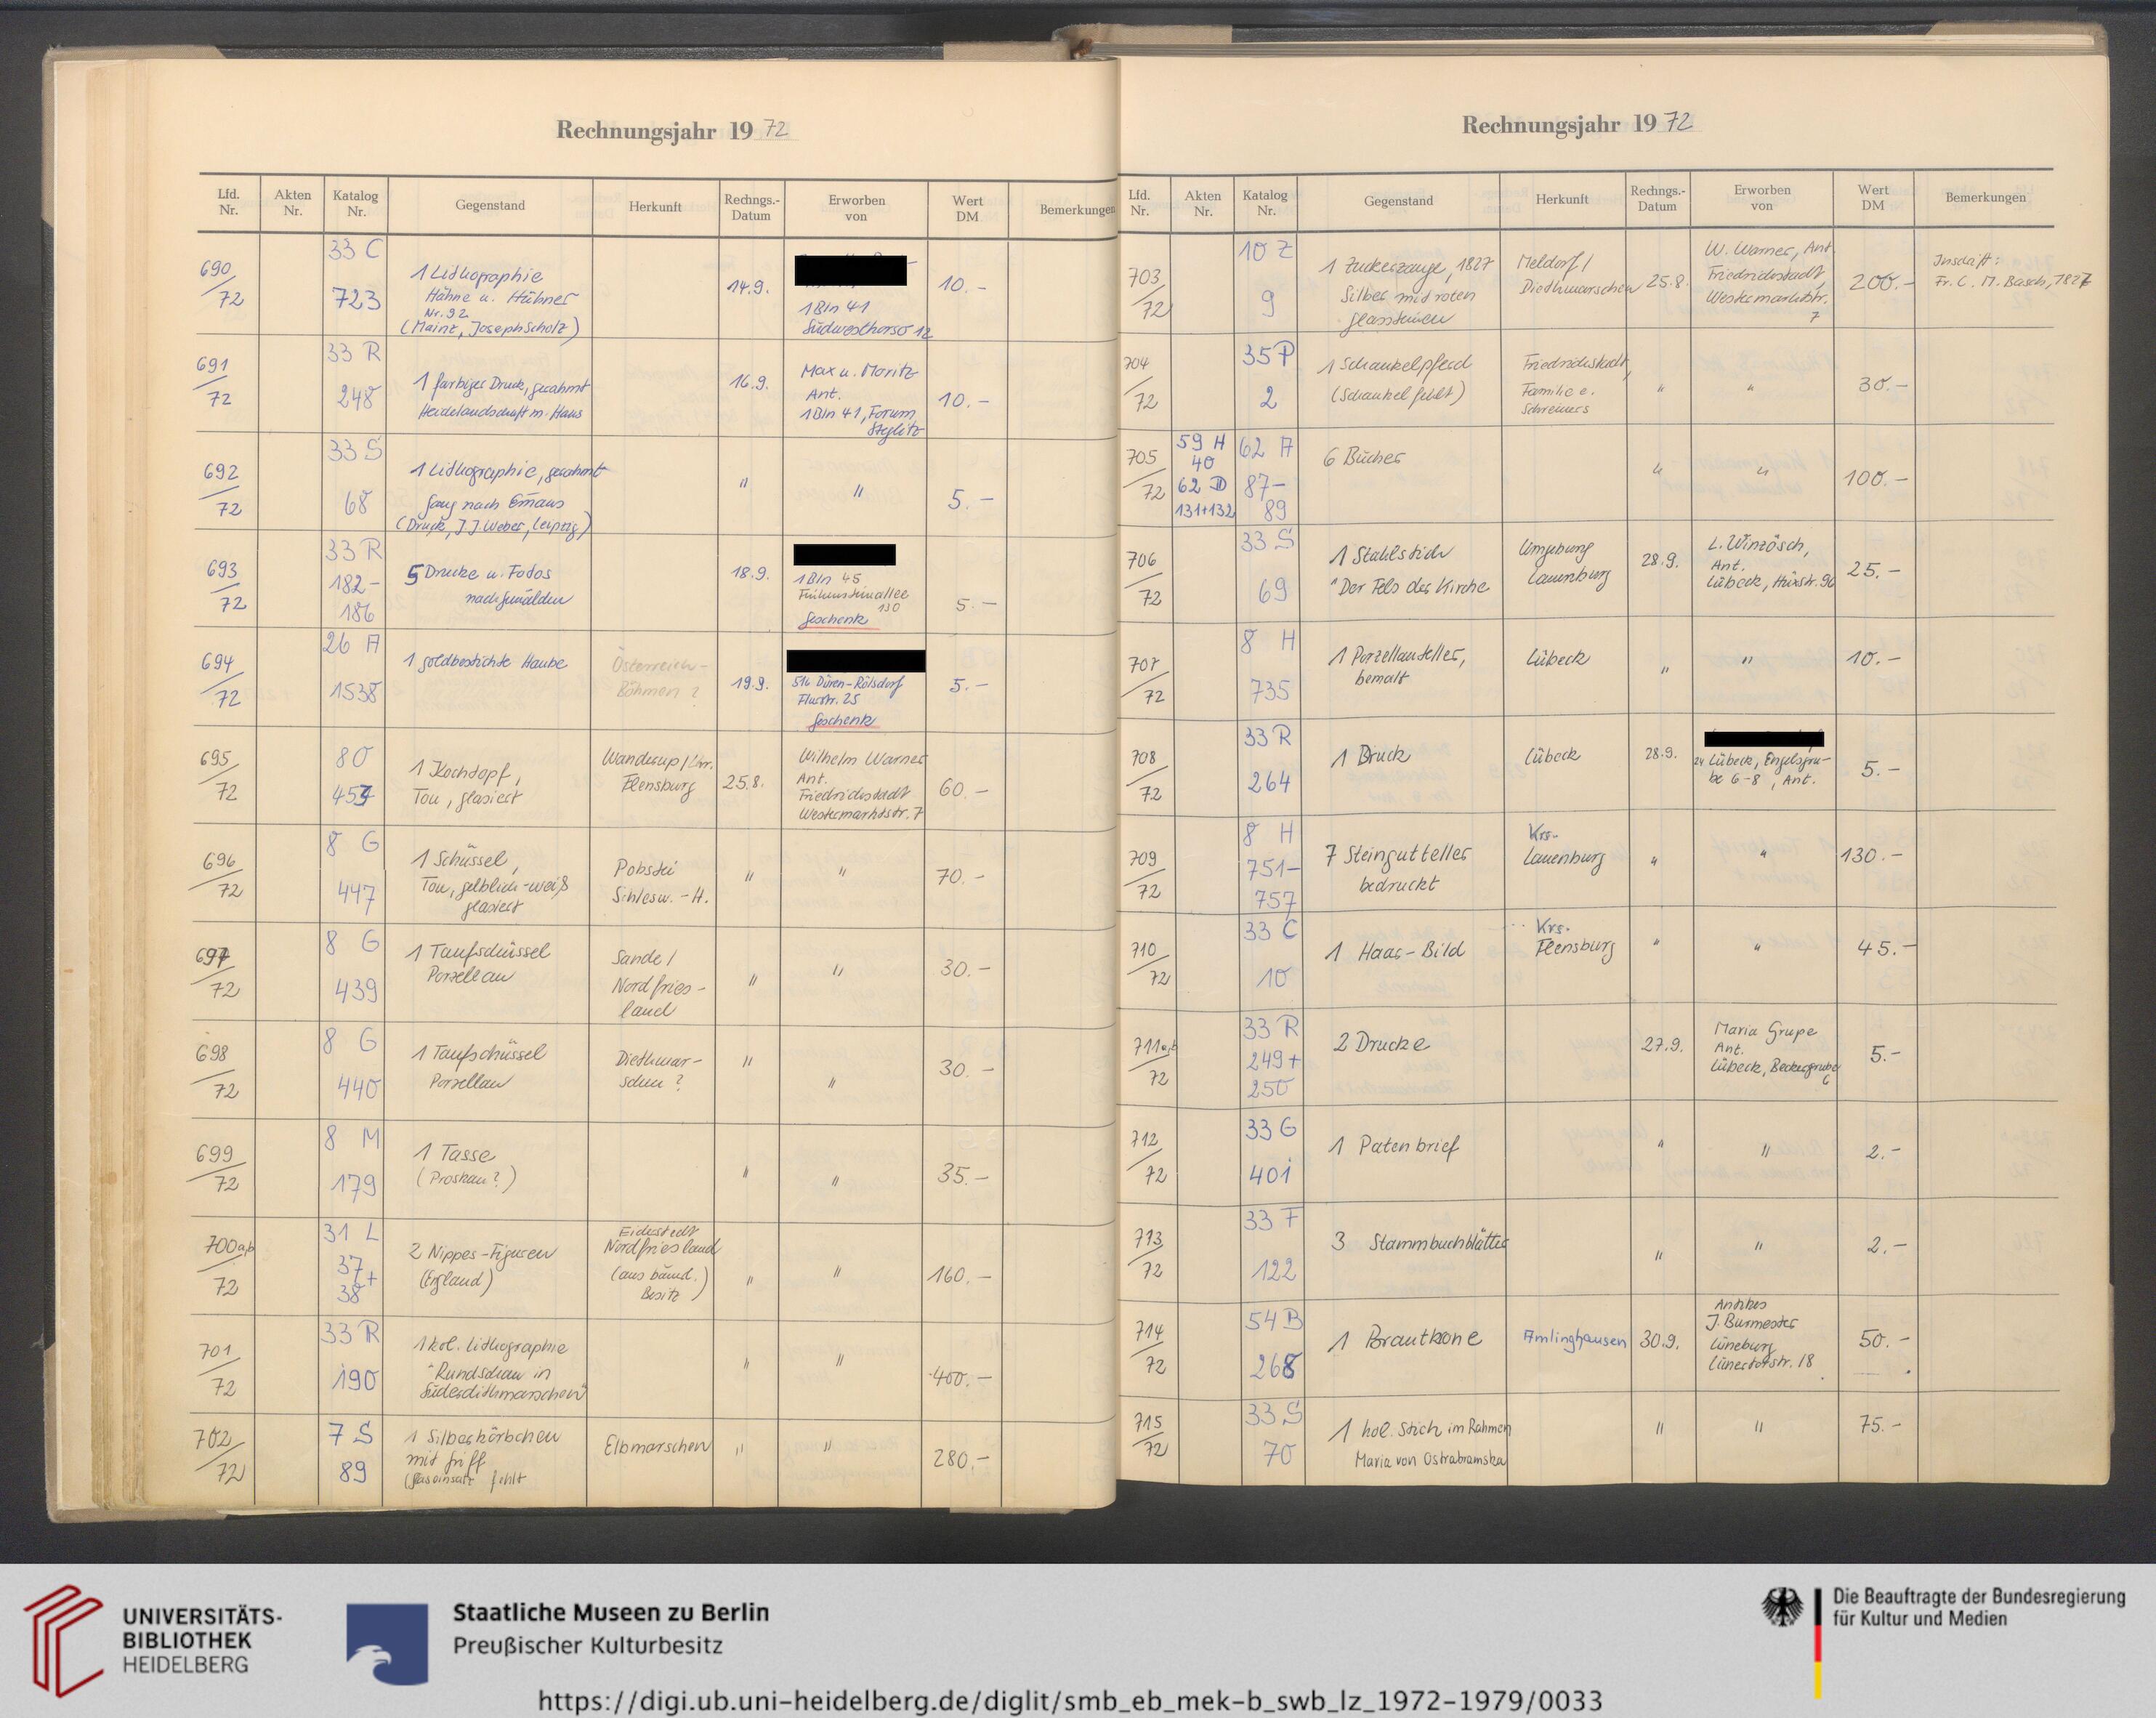 Rechnungsjahr 19 72
Lfd. Nr. Akten Nr. Katalog Nr. Gegenstand Herkunft Rechngs.-Datum Erworben von Wert DM Bemerkungen
690/72
33 C
723
1 Lithographie
Hähne u. Hühner
Nr. 92
(Mainz, Joseph Scholz)
14.9.
1 Bln 41
Südwestkorso 12
10.-
691/72
33 R
248
1 farbiger Druck, gerahmt
Heidelandschaft m. Haus
16.9.
Max u. Moritz
Ant.
1 Bln 41, Forum
Steglitz
10.-
692/72
33 S
68
1 Lithographie, gerahmt
Gang nach Emaus
(Druck, J.J. Weber, Leipzig)
"
"
5.-
693/72
33 R
182-
186
5 Drucke u. Fotos
nach Gemälden
18.9.
1 Bln 45
130
Geschenk
5.-
694/72
26 A
1538
1 goldbestickte Haube
Österreich-
Böhmen?
19.9.
516 Düren-Rölsdorf
Flurstr. 25
Geschenk
5.-
695/72
80
1 Kochtopf,
Ton, glasiert
Wanderup/Krr.
Flensburg
25.8.
Wilhelm Warner
Ant.
Friedrichstadt
Westermarktstr. 7
60.-
696/72
8 G
447
1 Schüssel,
Ton, gelblich-weiß
glasiert
Schlesw.-H.
"
"
70.-
697/72
8 G
439
1 Taufschüssel
Porzellan
Sande/
Nordfries-
land
"
"
30.-
698/72
8 G
440
1 Taufschüssel
Porzellan
Diethmar-
schen?
"
"
30.-
699/72
8 M
179
1 Tasse
(Proskau?)
"
"
35.-
700a,b/72
31 L
37+
38
2 Nippes-Figuren
(England)
Eiderstedt
Nordfriesland
(aus bäuerl.)
Besitz
"
"
160.-
701/72
33 R
190
1 kol. Lithographie
"Rundschau in
Süderdithmarschen"
"
"
400.-
702/72
7 S
89
1 Silberkörbchen
mit Griff
(Glaseinsatz fehlt
Elbmarschen
"
"
280.-
Rechnungsjahr 19 72
Lfd. Nr. Akten Nr. Katalog Nr. Gegenstand Herkunft Rechngs.-Datum Erworben von Wert DM Bemerkungen
703/72
10 Z
9
1 Zuckerzange, 1827
Silber mit roten
Glassteinen
Meldorf/
Diethmarschen
25.8.
W. Warner, Ant.
Friedrichstadt,
Westermarktstr.
7
200.-
Inschrift:
Fr. C. M. Basch, 1827
704/72
35 P
2
1 Schaukelpferd
(Schaukel fehlt)
Friedrichstadt,
Familie e.
Schreiners
"
"
30.-
705/72
59 H
40
62 D
131+132
62 A
87-
89
6 Bücher
"
"
100.-
706/72
33 S
69
1 Stahlstich
"Der Fels der Kirche
Umgebung
Lauenburg
28.9.
L. Winzösch,
Ant.
Lübeck, Hüxstr. 90
25.-
707/72
8 H
735
1 Porzellanteller,
bemalt
Lübeck
"
"
10.-
708/72
33 R
264
1 Druck
Lübeck
28.9.
24 Lübeck, Engelsgru-
be 6-8, Ant.
5.-
709/72
8 H
751-
757
7 Steingutteller
bedruckt
Krs.
Lauenburg
"
"
130.-
710/72
33 C
10
1 Haar-Bild
Krs.
Flensburg
"
"
45.-
711a,b/72
33 R
249+
250
2 Drucke
27.9.
Maria Grupe
Ant.
Lübeck, Beckergrube
6
5.-
712/72
33 G
401
1 Patenbrief
"
"
2.-
713/72
33 F
122
3 Stammbuchblätter
"
"
2.-
714/72
54 B
268
1 Brautkrone
Amlinghausen
30.9.
Antikes
J. Burmester
Lüneburg
Lünertorstr. 18
50.-
715/72
33 S
70
1 kol. Stich im Rahmen
Maria von Ostrabramska
"
"
75.-
UNIVERSITÄTS-
BIBLIOTHEK
HEIDELBERG
Staatliche Museen zu Berlin
Preußischer Kulturbesitz
Die Beauftragte der Bundesregierung
für Kultur und Medien
https://digi.ub.uni-heidelberg.de/diglit/smb_eb_mek-b_swb_lz_1972-1979/0033